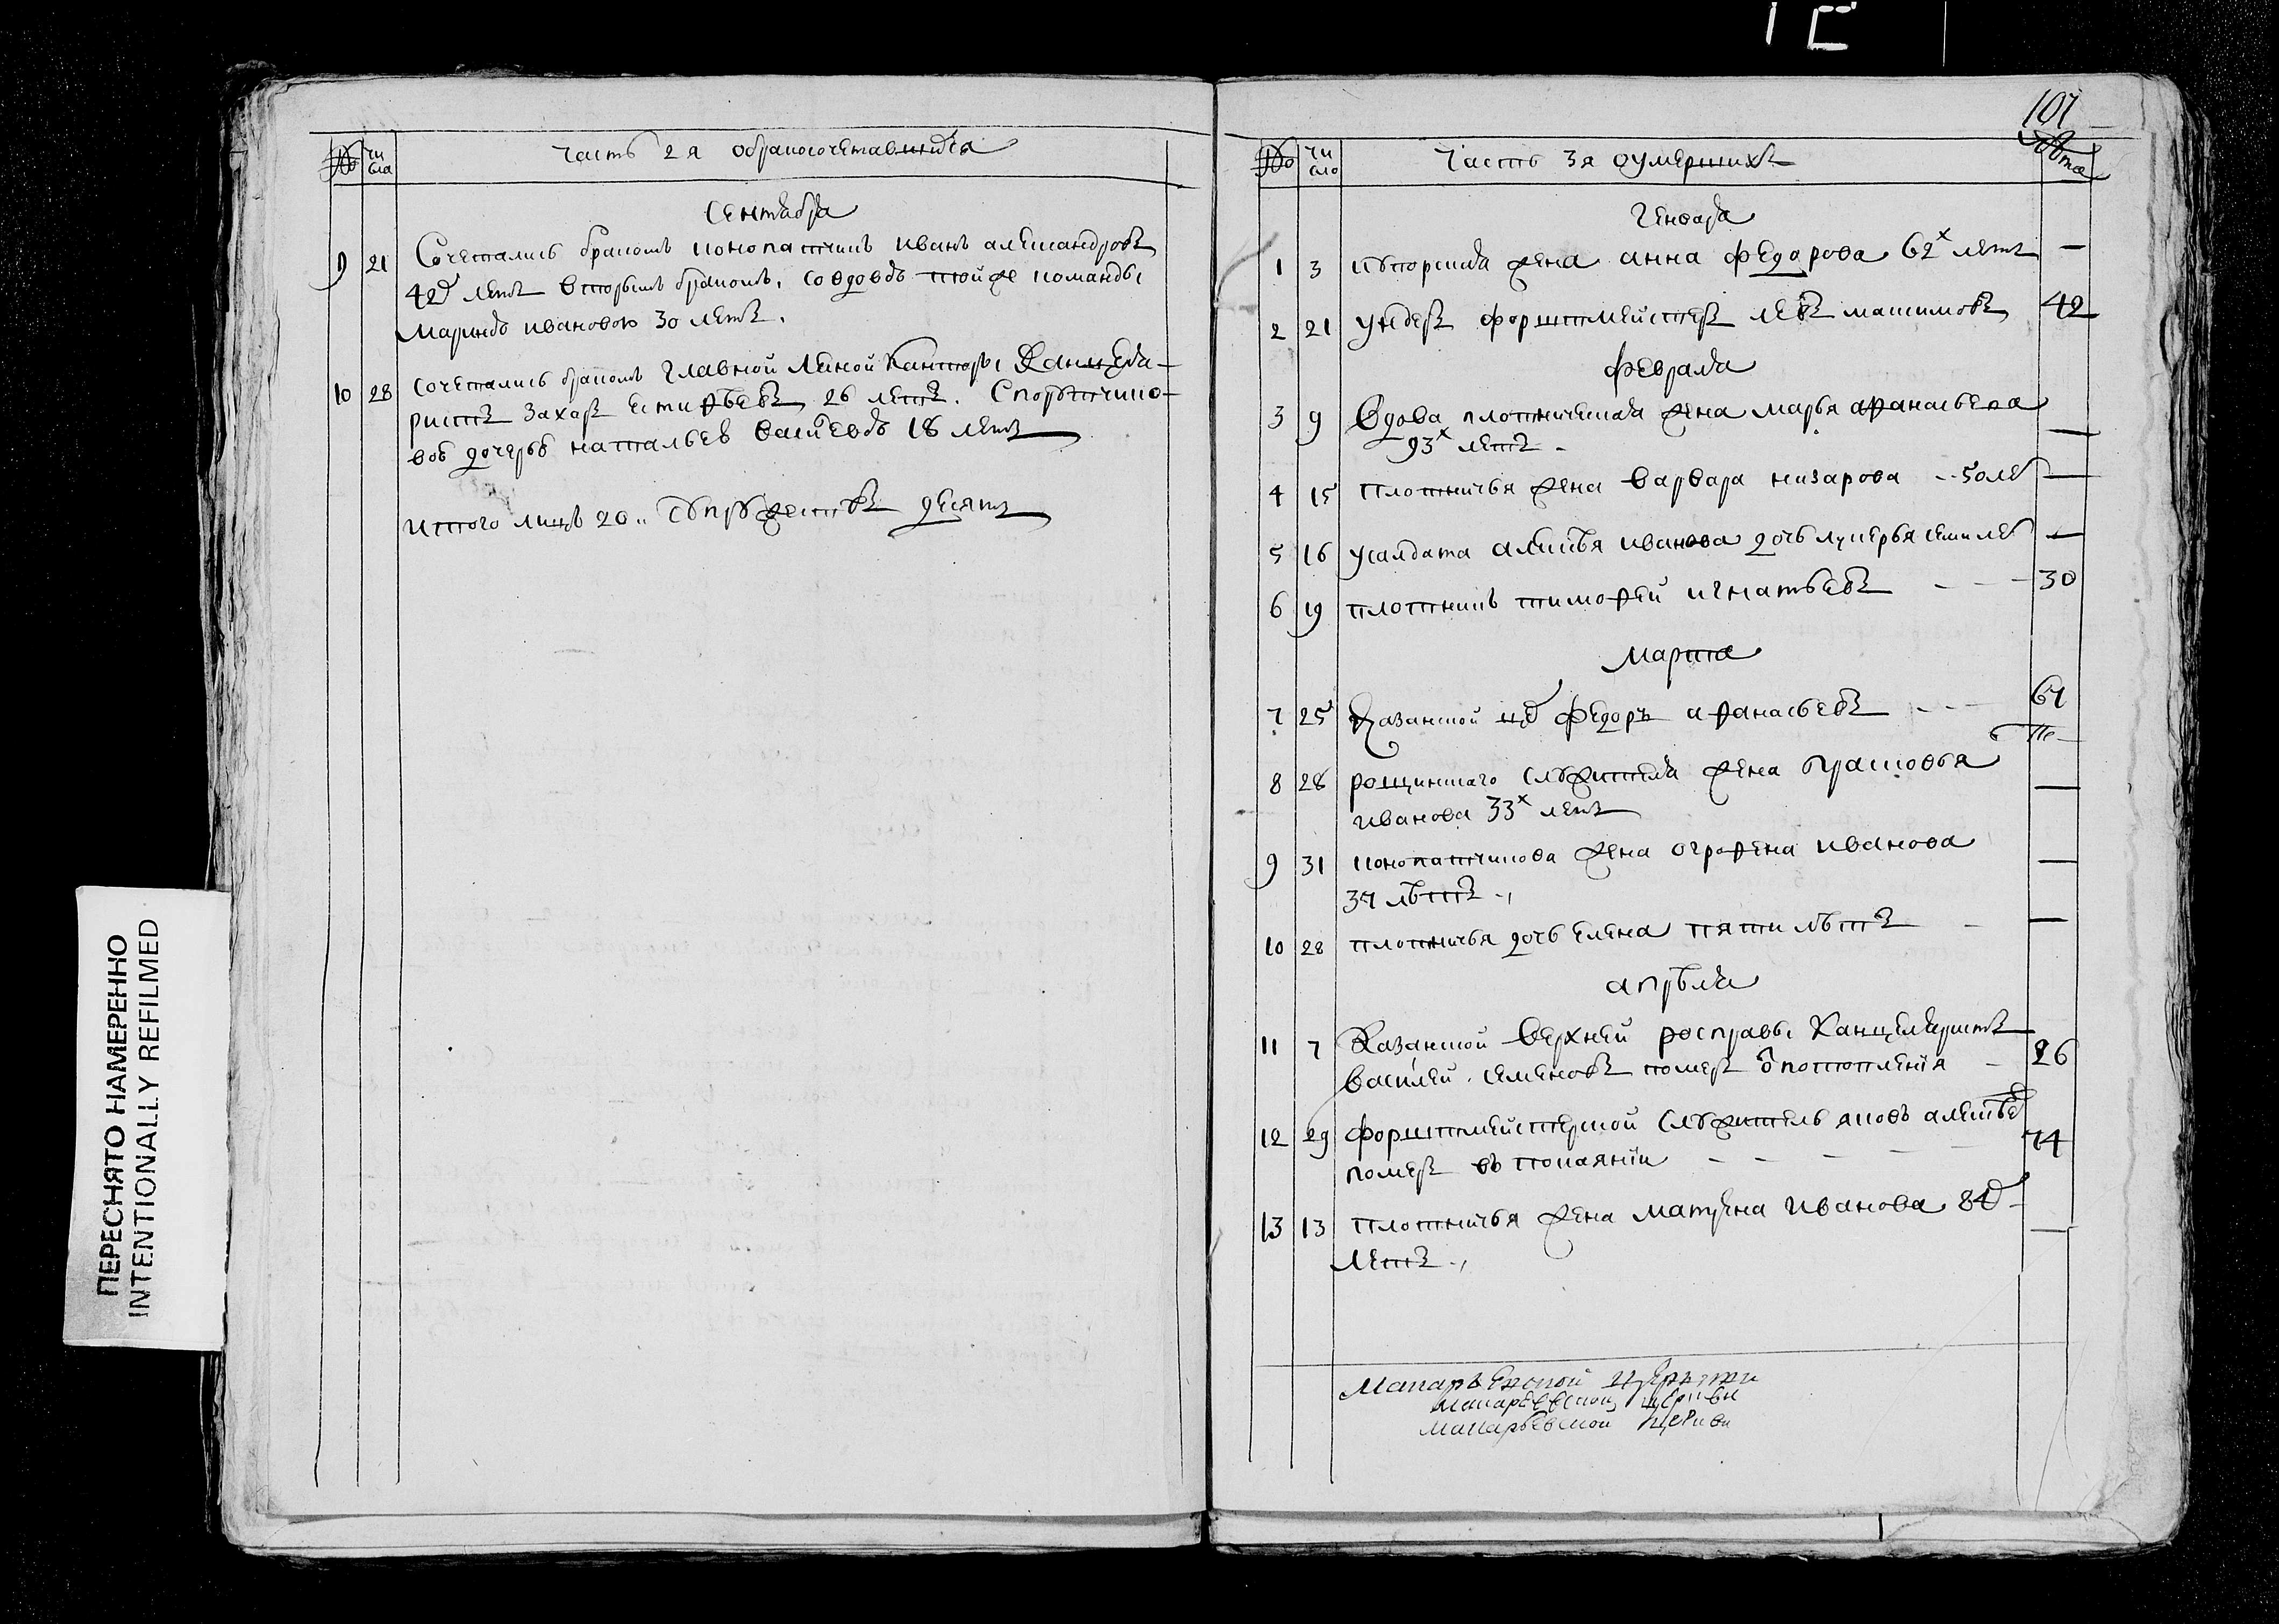 № чи сла Часть 2я обракосочетавшихся
Сентября
9 21 Сочетались бракомъ конопатчикъ иванъ александровъ
42х летъ вторымъ бракомъ, совдовою тойже команды
мариею ивановою 30 летъ.
10 28 сочетались бракомъ главной канторы Канцеля-
ристъ захаръ 26 летъ. С
дочерью натальею 18 летъ
итого лицъ 20.. супружествъ десять
107
№ чи сло Часть 3я оумершихъ лѣта
Генваря
1 3 жена анна федорова 62х летъ —
2 21 ундеръ форштмейстеръ левъ максимовъ 42
февраля
3 9 Вдова плотническая жена марья афанасьева
93х летъ - —
4 15 плотничья жена варвара назарова -- 50 ле —
5 16 усалдата алексѣя иванова дочь лукерья семи ле —
6 19 плотникъ тимофей игнатьевъ - - - 30
марта
7 25 Казанской федоръ афанасьевъ - - - 67
8 28 рощинскаго служителя жена прасковья
иванова 33х летъ —
9 31 конопатчикова жена ографена иванова —
37 лѣтъ -,
10 28 плотничья дочь елена пяти лѣтъ - —
апрѣля
11 7 Казанской верхней росправы Канцеляристъ
василей семеновъ померъ ѿ потопления - 26
12 29 форштмейстерской служитель яковъ алексѣе
померъ въ покаяніи - - - - - 74
13 13 плотничья жена матрена иванова 8
летъ ., —
Макарьевской церкви
макарьевской церкви
макарьевской церкви
ПЕРЕСНЯТО НАМЕРЕННО
INTENTIONALLY REFILMED